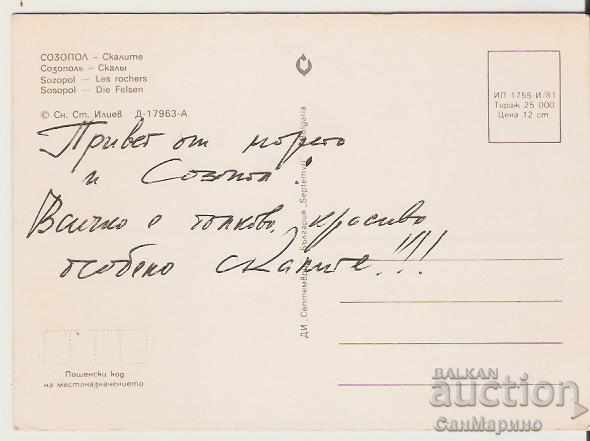 СОЗОПОЛ – Скалите
Созополь – Скалы
Sozopol – Les rochers
Sosopol – Die Felsen
© Сн. Ст. Илиев Д-17963-А
ИП 1755-И/81
Тираж 25 000
Цена 12 ст.
Привет от морето
и Созопол!
Всичко е толкова красиво
особено скалите!!!
ДИ „Септември" България „Septemvri" Bulgaria
Пощенски код
на местоназначението
BALKAN
auction
СанМарино